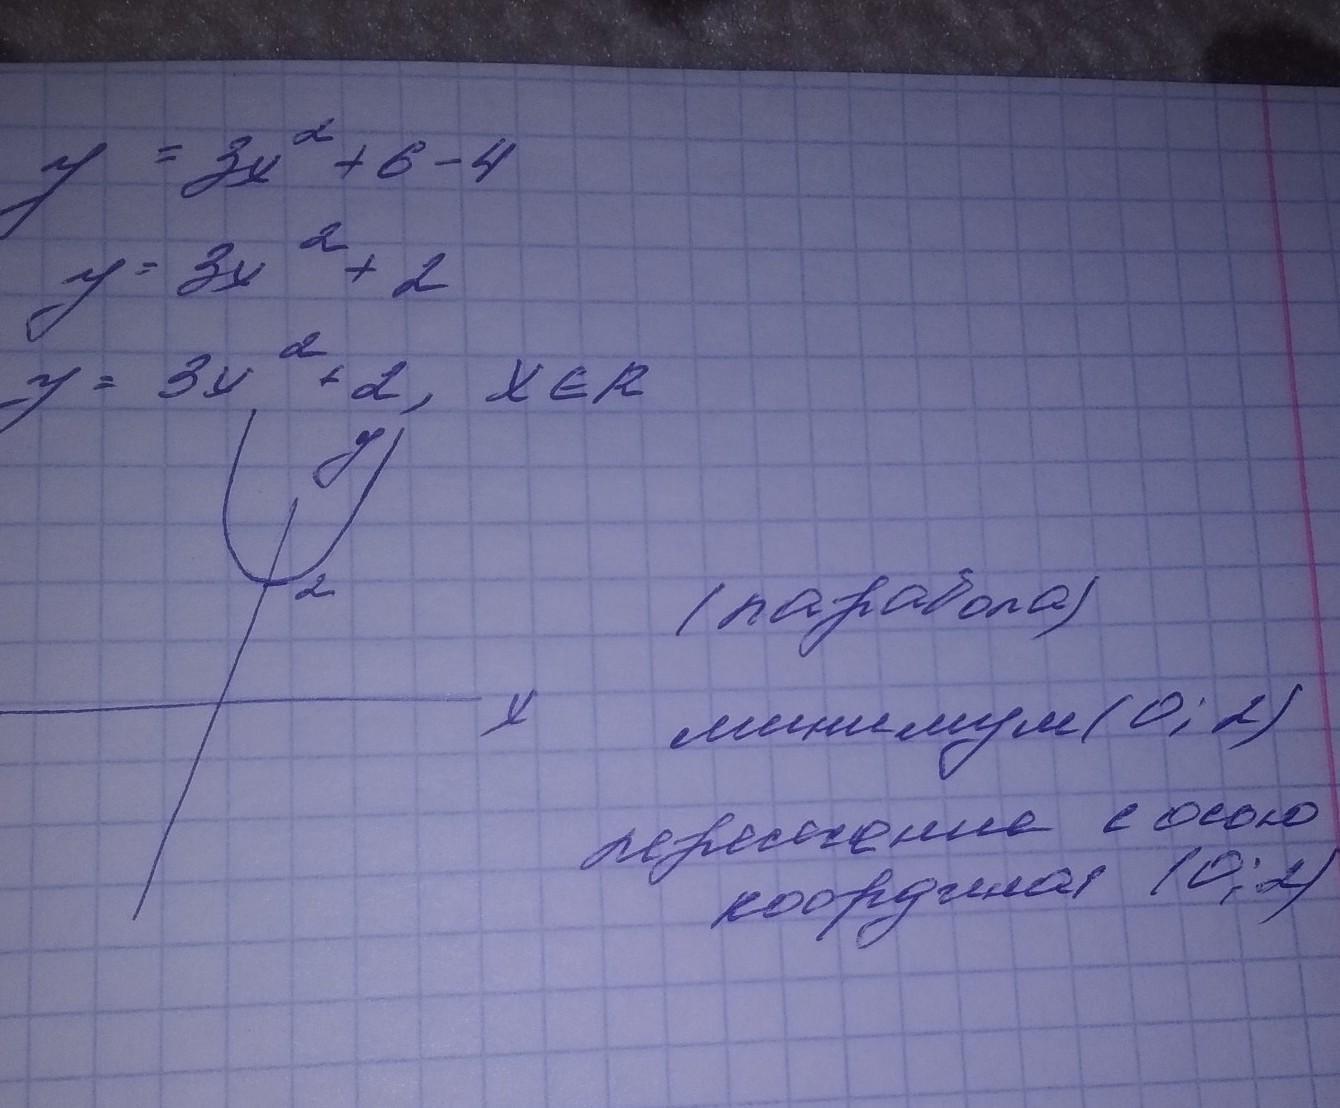 y = 3x² + 6 - 4
y = 3x² + 2
y = 3x² + 2, x ∈ R
y
2
x
(парабола)
минимум (0; 2)
пересечение с осью
координат (0; 2)